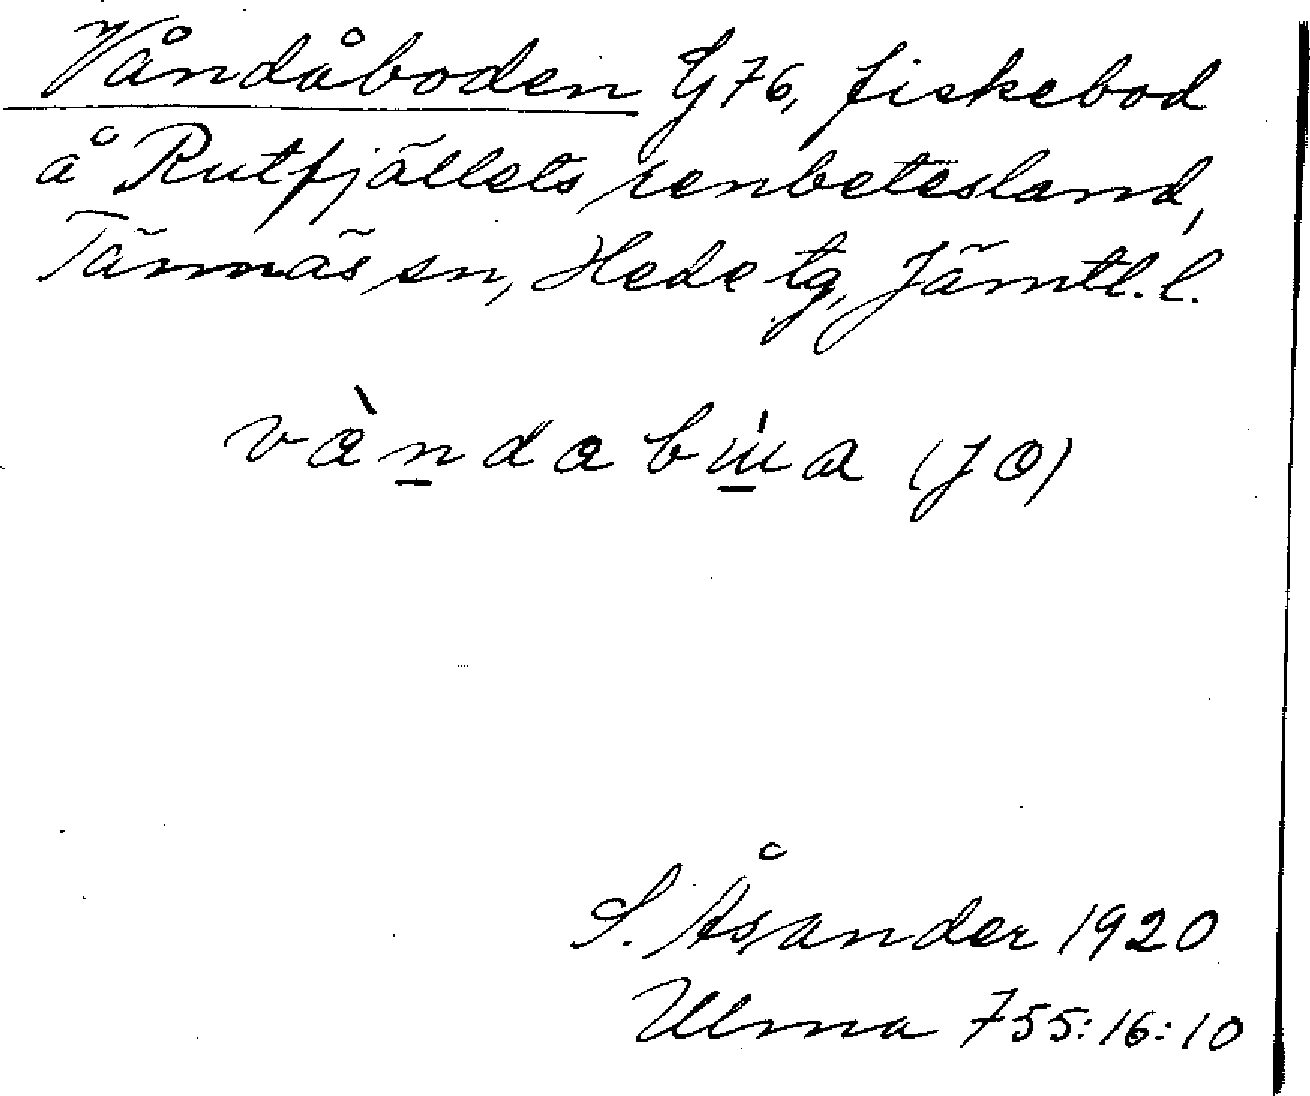 Våndåboden G76, fiskebod
å Rutfjällets renbetesland,
Tännäs sn, Hede tg, Jämtl. l.
vàndabɯ́a (JO)
S. Åsander 1920
Ulma 755:16:10